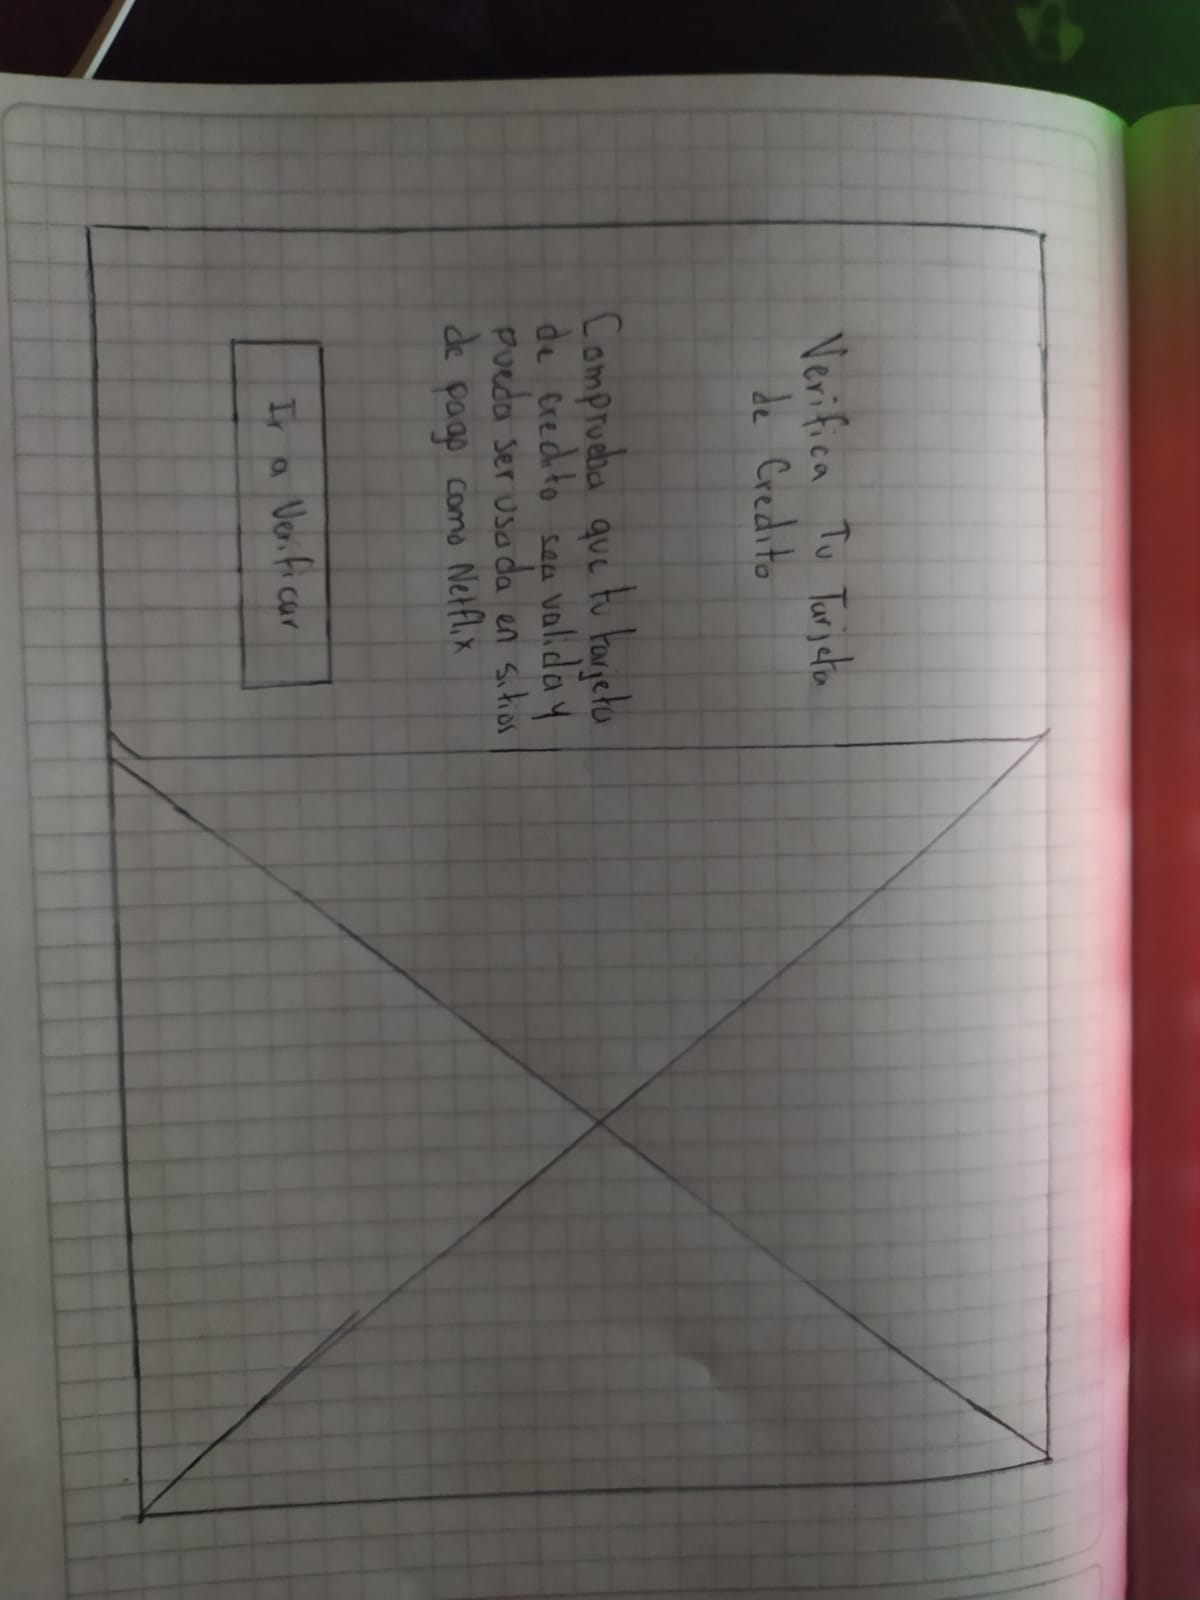 Verifica Tu Tarjeta
de Credito
Comprueba que tu tarjeta
de credito sea valida y
pueda ser usada en sitios
de pago como Netflix
Ir a Verificar